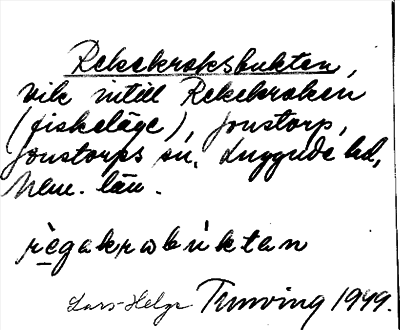 Rekekroksbukten,
vik intill Rekekroken
(fiskeläge), Jonstorp,
Jonstorps sn, Luggude hd,
Malm. län.
règakrabúktan
Lars-Helge Tunving 1949.